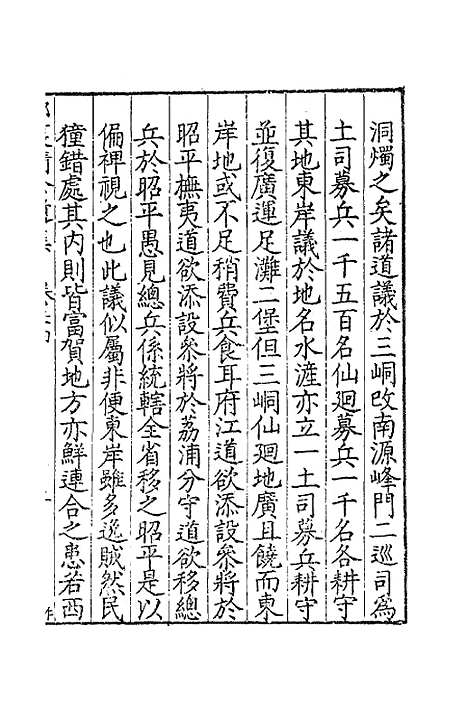 洞燭之矣諸道議於三峒改南源峰門二巡司爲
土司募兵一千五百名仙廻募兵一千名各耕守
其地東岸議於地名水滻亦立一土司募兵耕守
並復廣運足灘二堡但三峒仙廻地廣且饒而東
岸地或不足稍費兵食耳府江道欲添設叅將於
昭平撫夷道欲添設叅將於荔浦分守道欲移總
兵於昭平愚見總兵係統轄全省移之昭平是以
偏裨視之也此議似屬非便東岸雖多逸賊然民
獞錯處其内則皆富賀地方亦鮮連合之患若西